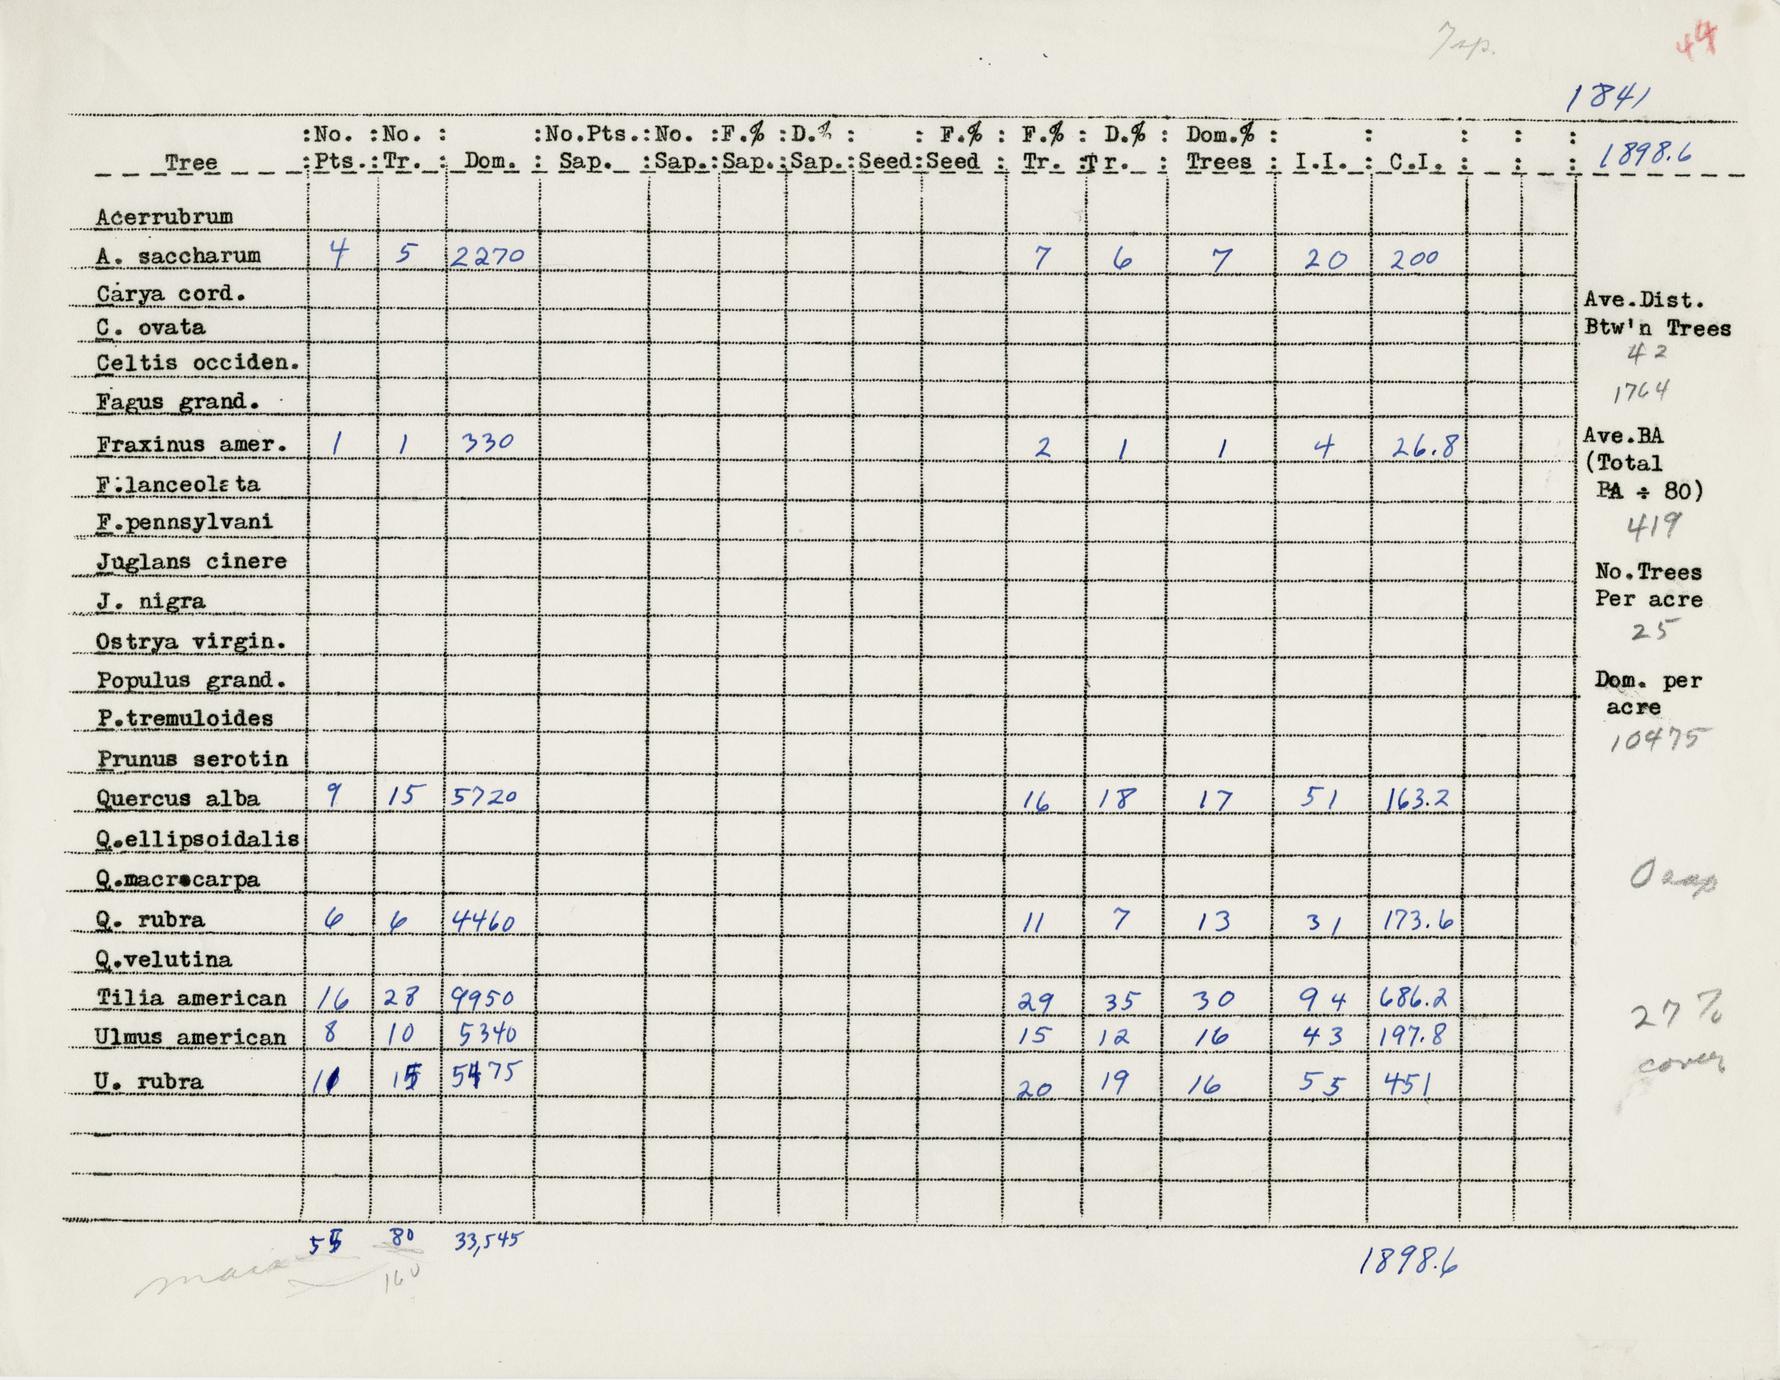 7 sp. 44
1841
:No. :No. : :No.Pts.:No. :F.% :D.% : : F.% : F.% : D.% : Dom.% : : : : : 1898.6
Tree :Pts.:Tr. : Dom. : Sap. :Sap.:Sap.:Sap.:Seed:Seed : Tr. :Tr. : Trees : I.I. : C.I. : : :
Acerrubrum
A. saccharum 4 5 2270 7 6 7 20 200
Carya cord.
Ave.Dist.
C. ovata
Btw'n Trees
42
Celtis occiden.
1764
Fagus grand.
Ave.BA
Fraxinus amer. 1 1 330 2 1 1 4 26.8
(Total
F.lanceolata
BA ÷ 80)
F.pennsylvani
419
Juglans cinere
No.Trees
J. nigra
Per acre
Ostrya virgin.
25
Populus grand.
Dom. per
P.tremuloides
acre
10475
Prunus serotin
Quercus alba 9 15 5720 16 18 17 51 163.2
Q.ellipsoidalis
Q.macrocarpa
0 sap
Q. rubra 6 6 4460 11 7 13 31 173.6
Q.velutina
Tilia american 16 28 9950 29 35 30 94 686.2
27%
Ulmus american 8 10 5340 15 12 16 43 197.8
cover
U. rubra 11 15 5475 20 19 16 55 451
55 80 33,545 1898.6
160